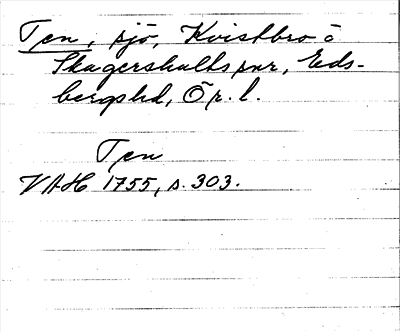 Ten, sjö, Kvistbro o
Skagershults snr, Eds-
bergs hd, Ör. l.
Ten
VAH 1755, s. 303.